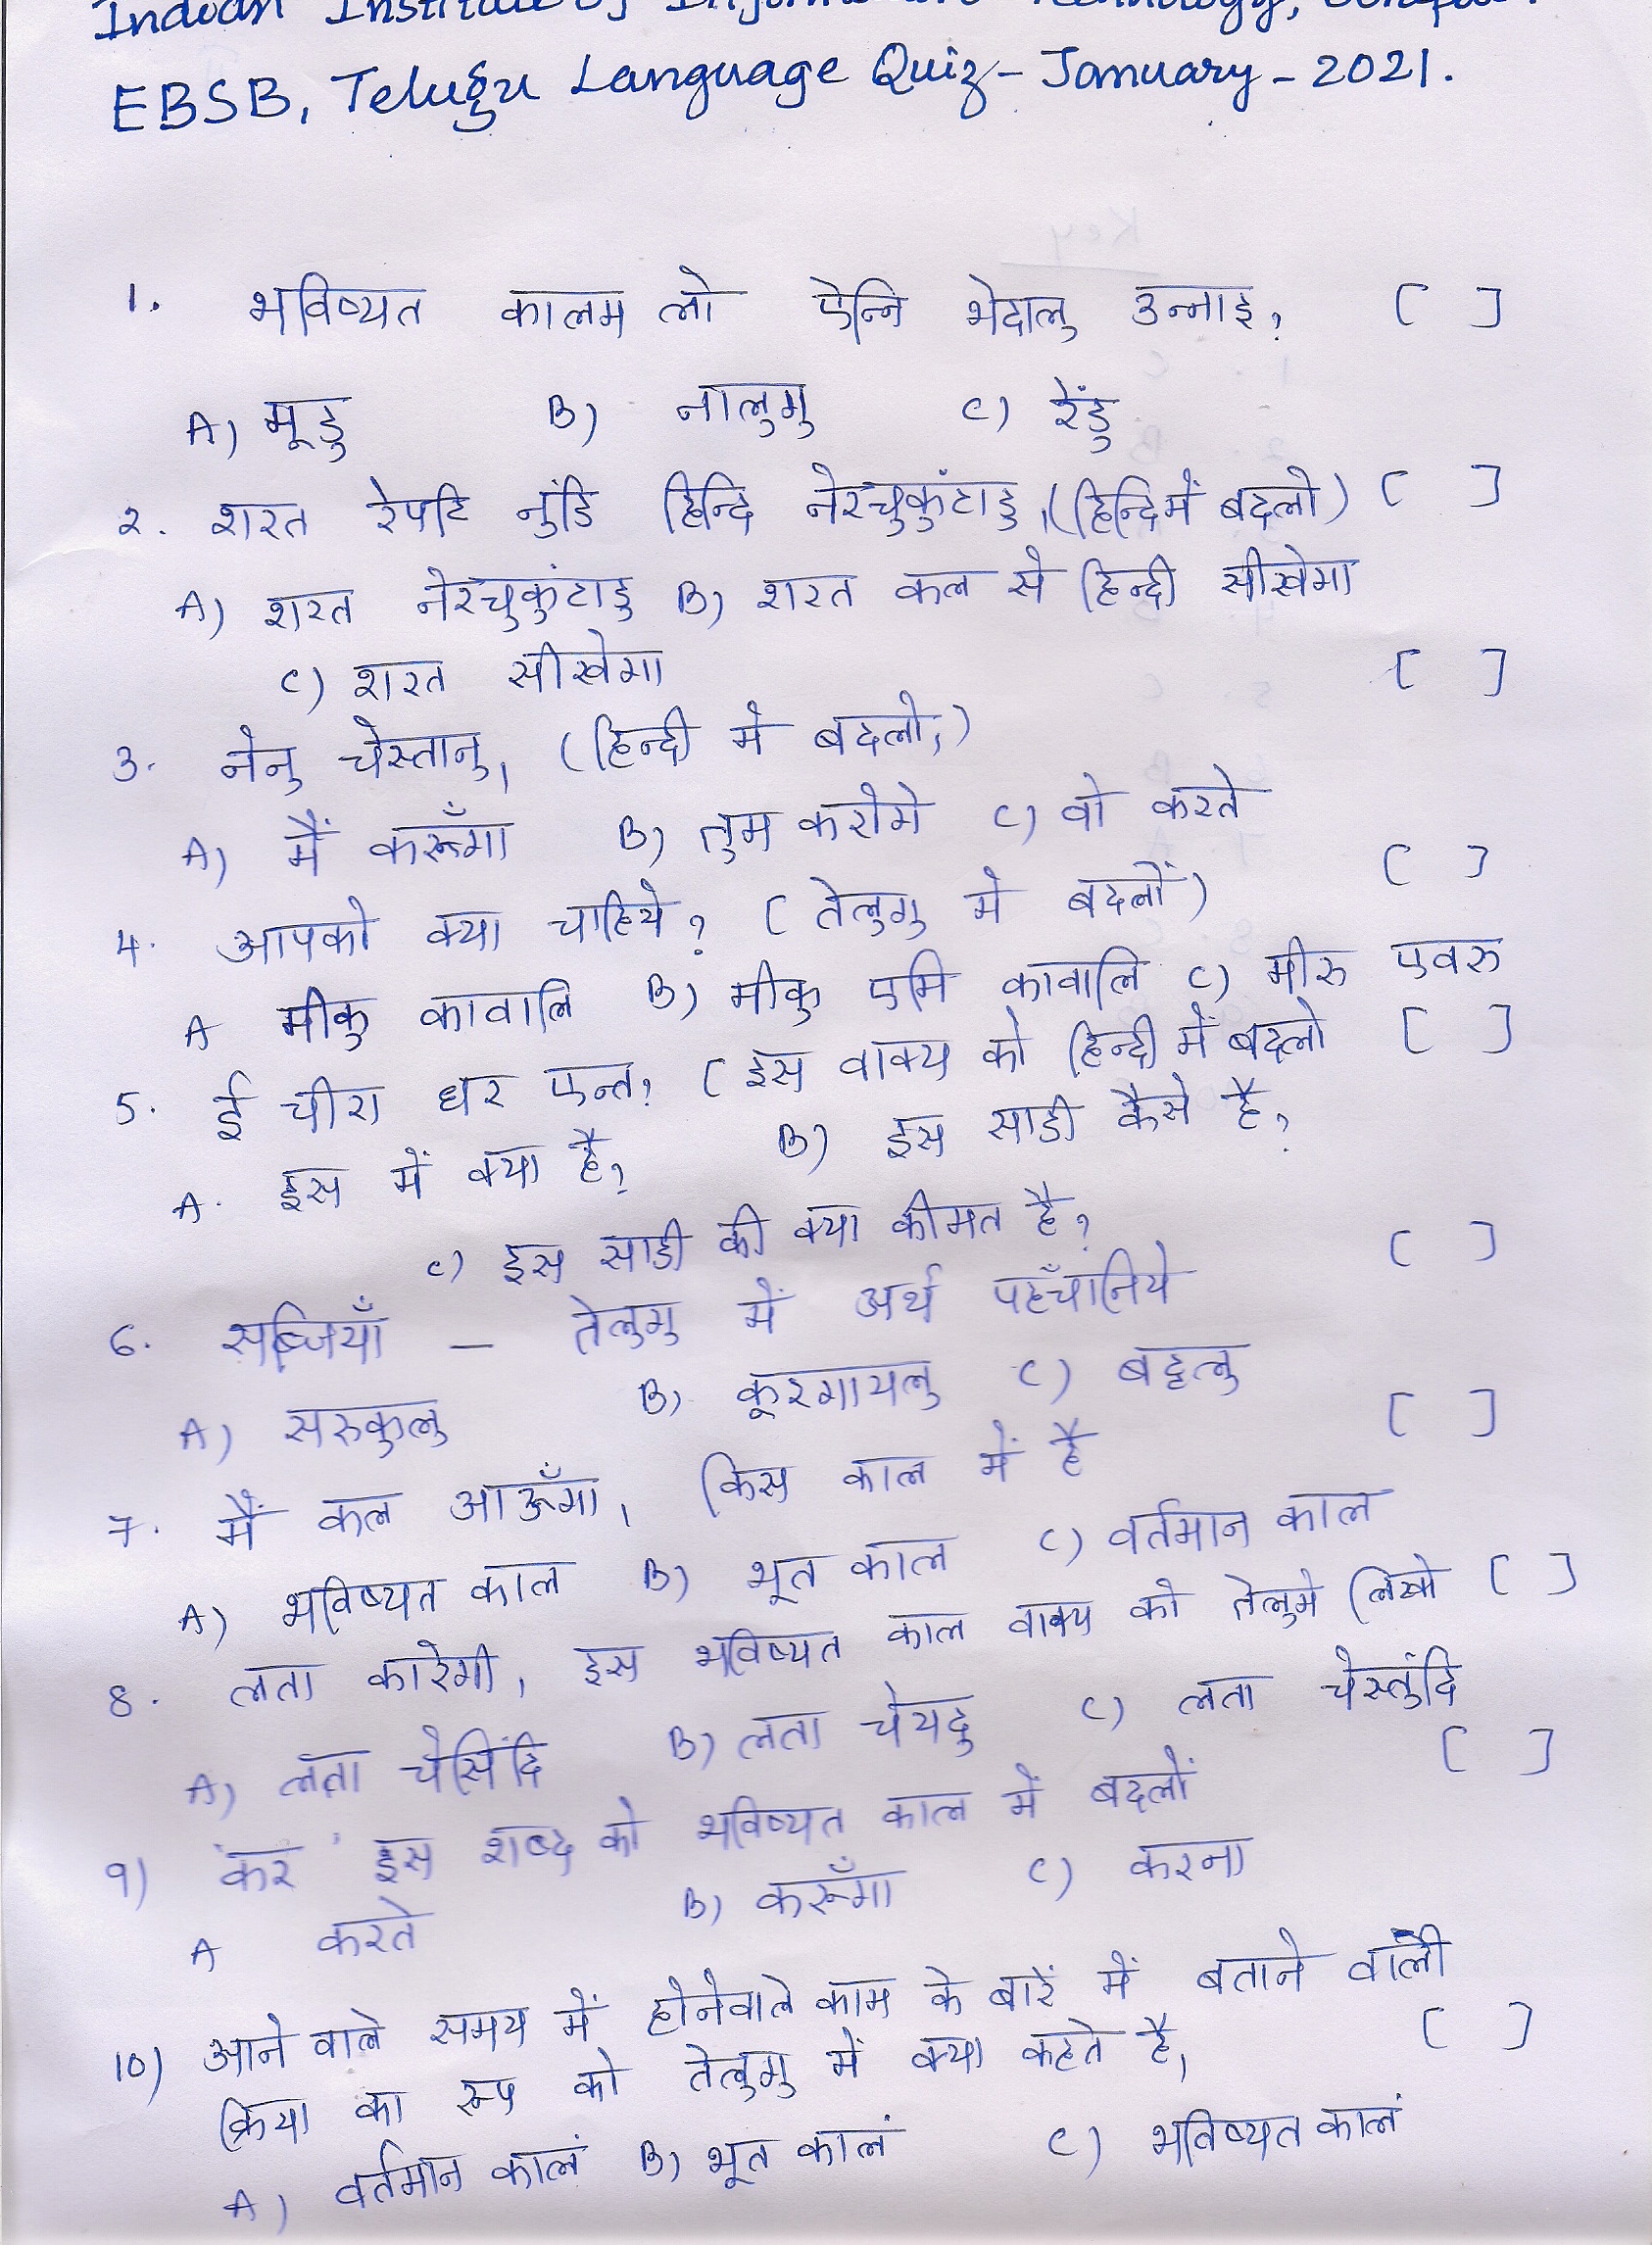 Indian Institute of Information Technology,
EBSB, Telugu Language Quiz - January - 2021.
1. भविष्यत कालम लो ऐन्नि भेदालु उन्नाइ? [ ]
A) मूडु B) नालुगु C) रेंडु
२. शरत रेपटि नुंडि हिन्दि नेरचुकुंटाडु, (हिन्दि में बदलो) [ ]
A) शरत नेरचुकुंटाडु B) शरत कल से हिन्दी सीखेगा
C) शरत सीखेगा [ ]
3. नेनु चेस्तानु, (हिन्दी मे बदलो,)
A) मैं करूँगा B) तुम करोगे C) वो करते
4. आपको क्या चाहिये? ( तेलुगु मे बदलों) [ ]
A मीकु कावालि B) मीकु एमि कावालि C) मीरु एवरु
5. ई चीरा धर एन्त? ( इस वाक्य को हिन्दी में बदलो [ ]
A. इस में क्या है? B) इस साडी कैसे है?
C) इस साडी की क्या कीमत है?
6. सब्जियाँ - तेलुगु में अर्थ पहँचानिये [ ]
A) सरुकुलु B) कूरगायलु C) बट्टलु
7. मैं कल आऊँगा, किस काल में है [ ]
A) भविष्यत काल B) भूत काल C) वर्तमान काल
8. लता कारेगी, इस भविष्यत काल वाक्य को तेलुगे लिखो [ ]
A) लता चेसिंदि B) लता चेयदु C) लता चेस्तुंदि
9) 'कर' इस शब्द को भविष्यत काल में बदलों [ ]
A करते B) करूँगा C) करना
10) आने वाले समय में होनेवाले काम के बारें में बताने वाली
क्रिया का रूप को तेलुगु में क्या कहते है, [ ]
A) वर्तमान कालं B) भूत कालं C) भविष्यत कालं